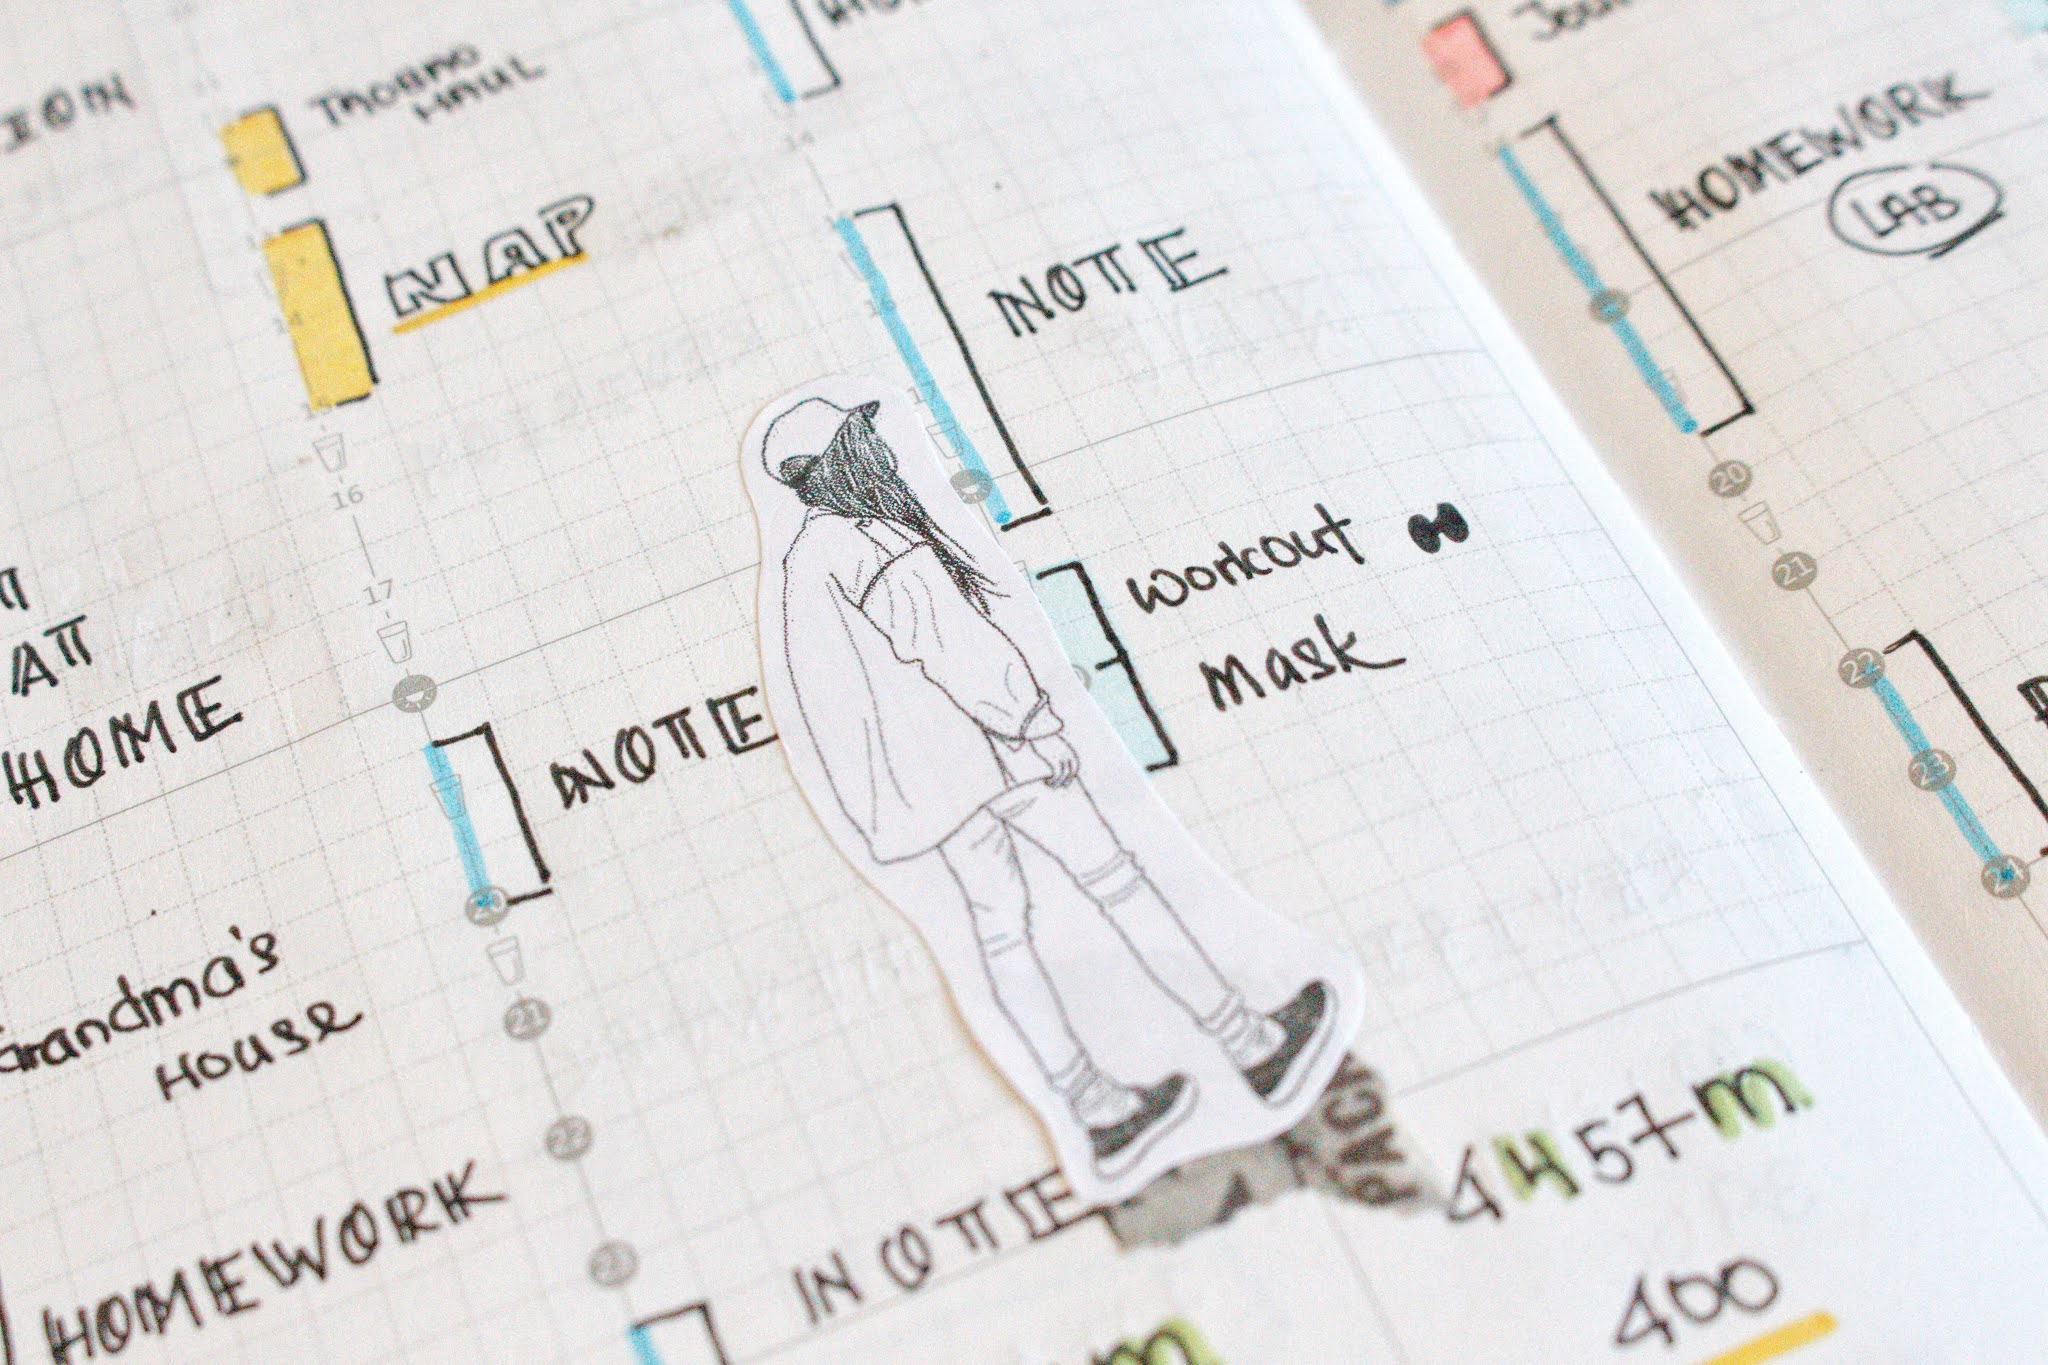 THOMANN
HAUL
NAP
16
17
AT
HOME
NOTE
20
Grandma's
House
21
22
HOMEWORK
23
14
NOTE
17
Workout
Mask
NOTE
PACK
4457m
400
m
HOMEWORK
LAB
20
21
22
23
24